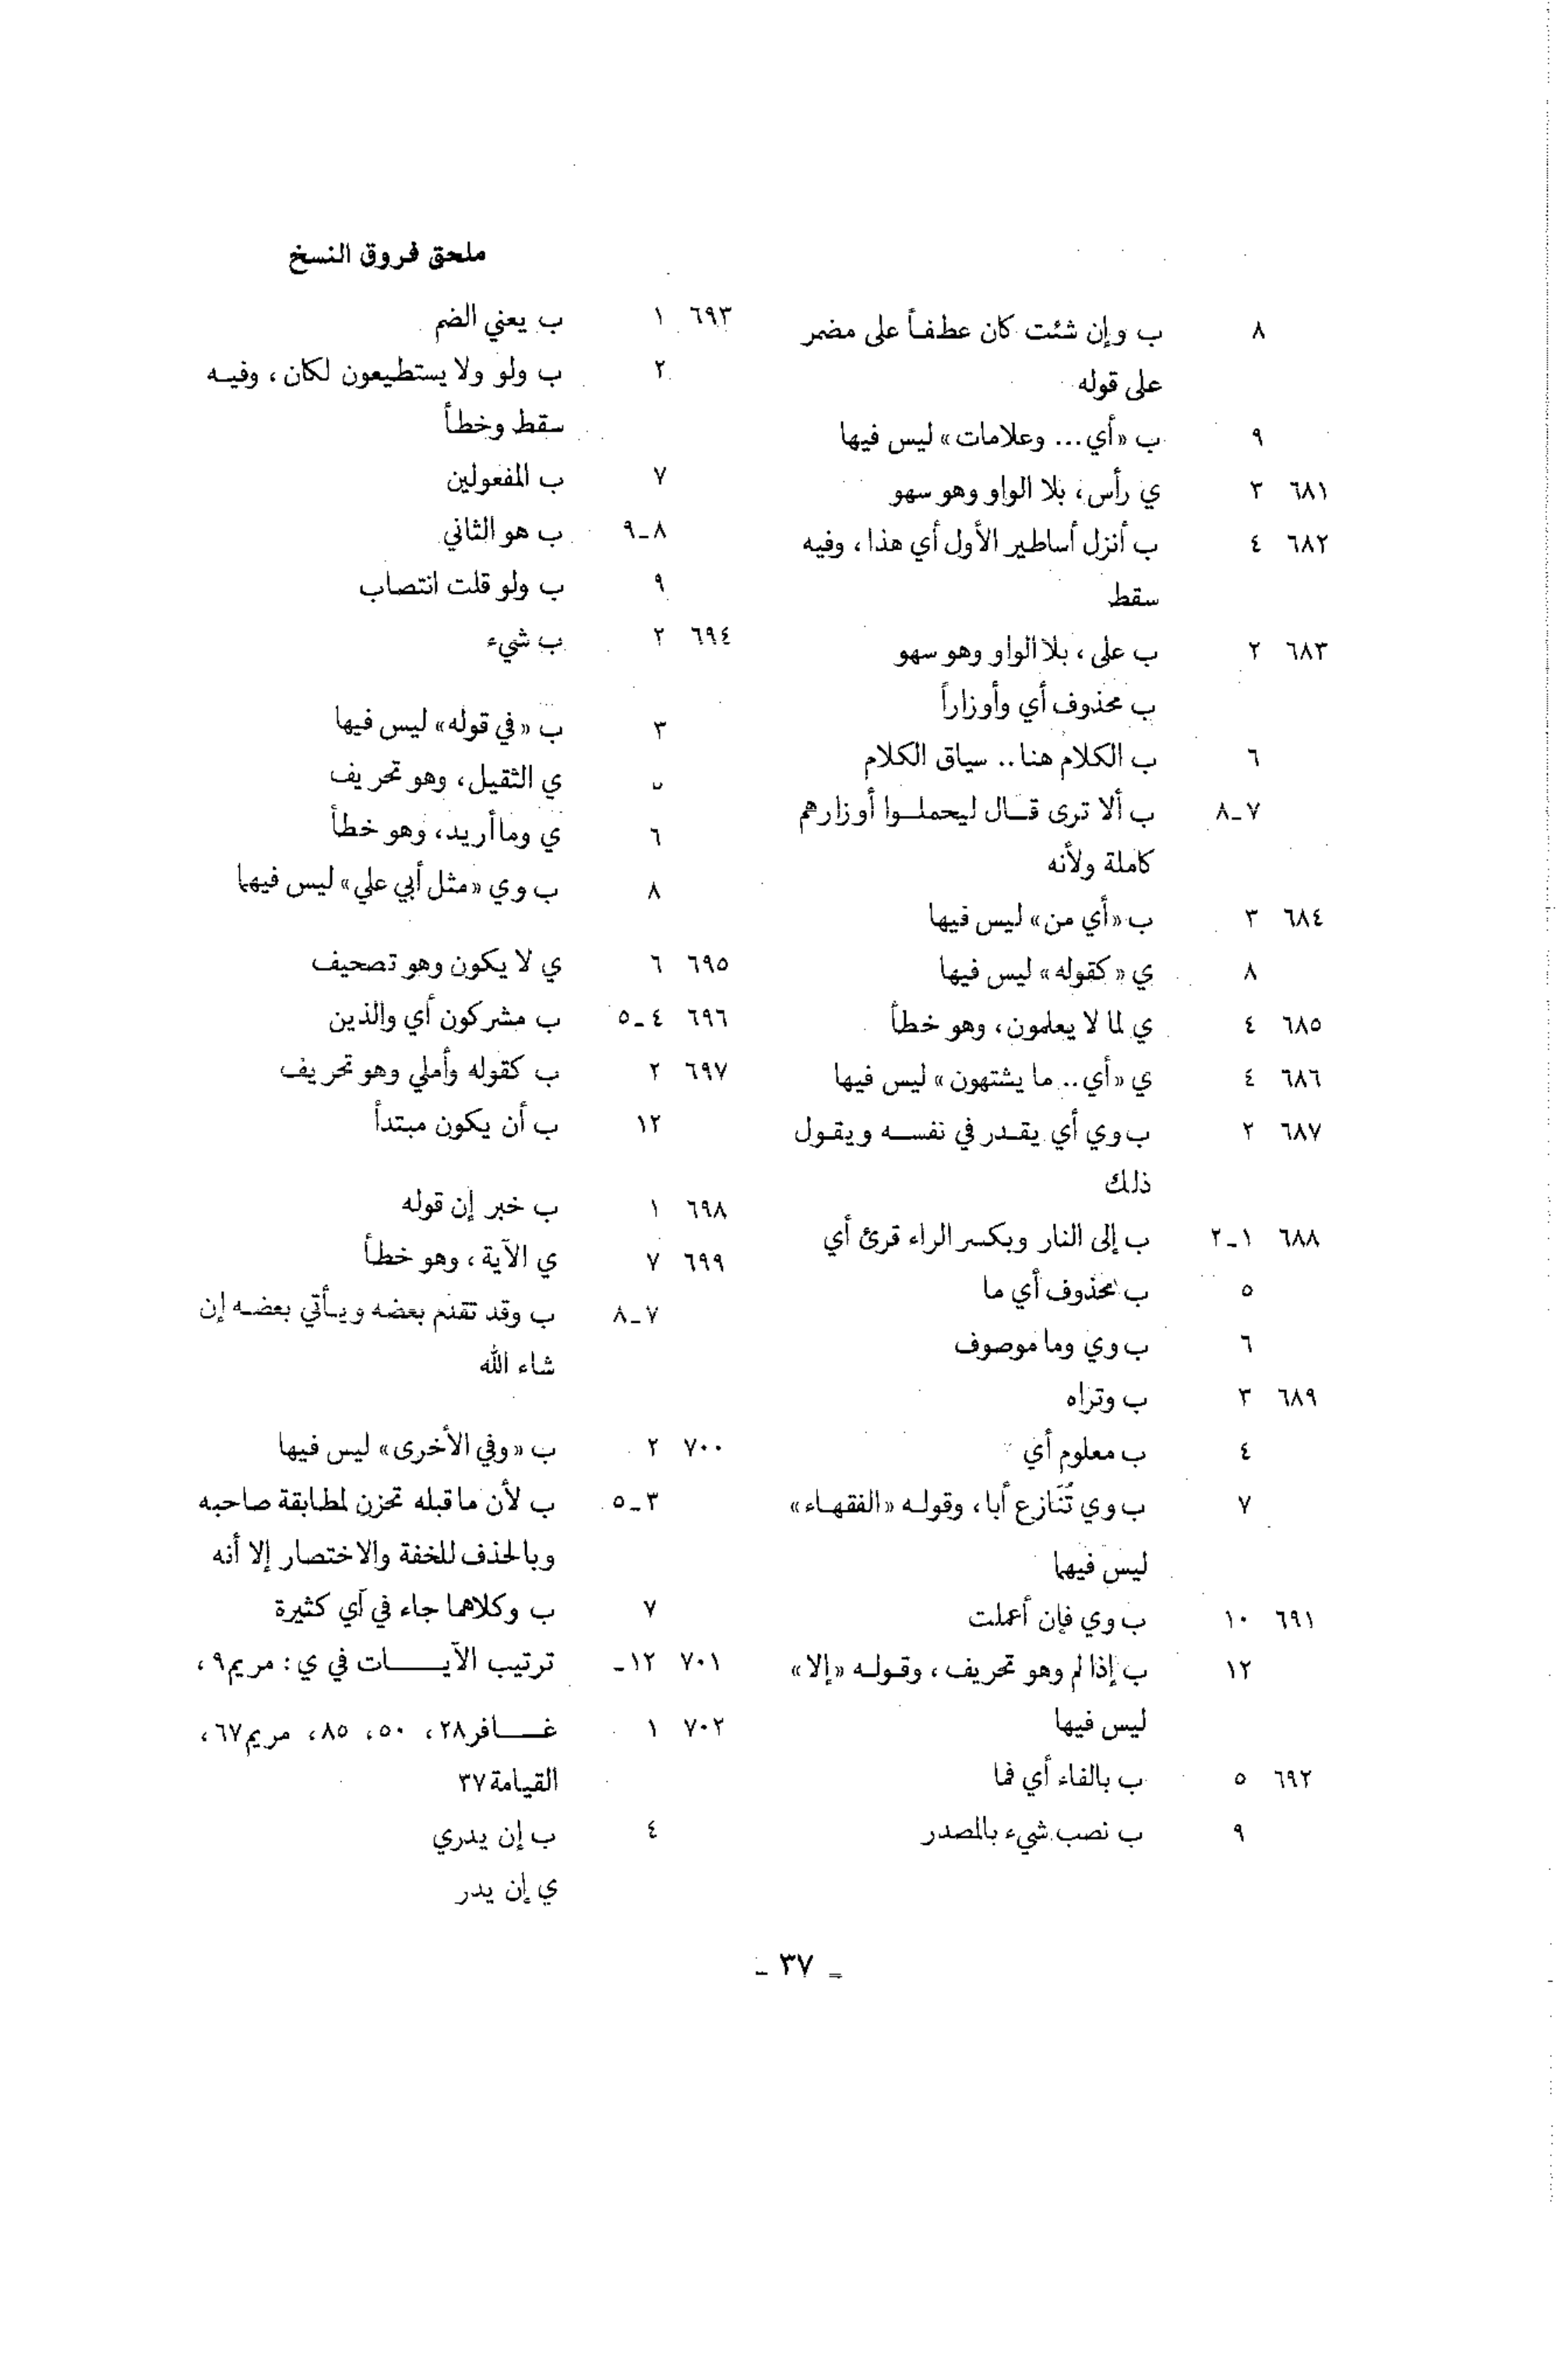 ملحق فروق النسخ
٨ ب وإن شئت كان عطفاً على مضمر
على قوله
٩ ب «أي... وعلامات» ليس فيها
٦٨١ ٣ ي رأس، بلا الواو وهو سهو
٦٨٢ ٤ ب أنزل أساطير الأول أي هذا، وفيه
سقط
٦٨٣ ٢ ب على، بلا الواو وهو سهو
ب محذوف أي وأوزاراً
٦ ب الكلام هنا.. سياق الكلام
٧-٨ ب ألا ترى قال ليحملوا أوزارهم
كاملة ولأنه
٦٨٤ ٣ ب «أي من» ليس فيها
٨ ي «كقوله» ليس فيها
٦٨٥ ٤ ي لما لا يعلمون، وهو خطأ
٦٨٦ ٤ ي «أي.. ما يشتهون» ليس فيها
٦٨٧ ٢ ب وي أي يقدر في نفسه ويقول
ذلك
٦٨٨ ١-٢ ب إلى النار وبكسر الراء قرئ أي
٥ ب محذوف أي ما
٦ ب وي وما موصوف
٦٨٩ ٣ ب وتراه
٤ ب معلوم أي
٧ ب وي تُنَازع أبا، وقوله «الفقهاء»
ليس فيها
٦٩١ ١٠ ب وي فإن أعملت
١٢ ب إذا لم وهو تحريف، وقوله «إلا»
ليس فيها
٦٩٢ ٥ ب بالفاء أي فما
٩ ب نصب شيء بالمصدر
٦٩٣ ١ ب يعني الضم
٢ ب ولو ولا يستطيعون لكان، وفيه
سقط وخطأ
٧ ب المفعولين
٨-٩ ب هو الثاني
٩ ب ولو قلت انتصاب
٦٩٤ ٢ ب شيء
٣ ب «في قوله» ليس فيها
ي الثقيل، وهو تحريف
٦ ي وما أريد، وهو خطأ
٨ ب وي «مثل أبي علي» ليس فيها
٦٩٥ ٦ ي لا يكون وهو تصحيف
٦٩٦ ٤-٥ ب مشركون أي والذين
٦٩٧ ٢ ب كقوله وأملي وهو تحريف
١٢ ب أن يكون مبتدأ
٦٩٨ ١ ب خبر إن قوله
٦٩٩ ٧ ي الآية، وهو خطأ
٧-٨ ب وقد تقدم بعضه ويأتي بعضه إن
شاء الله
٧٠٠ ٢ ب «وفي الأخرى» ليس فيها
٣-٥ ب لأن ما قبله تحزن لمطابقة صاحبه
وبالحذف للخفة والاختصار إلا أنه
٧ ب وكلاهما جاء في آي كثيرة
٧٠١ ١٢- ترتيب الآيات في ي: مريم٩،
٧٠٢ ١ غافر٢٨، ٥٠، ٨٥، مريم٦٧،
القيامة٣٧
٤ ب إن يدري
ي إن يدر
- ٣٧ -